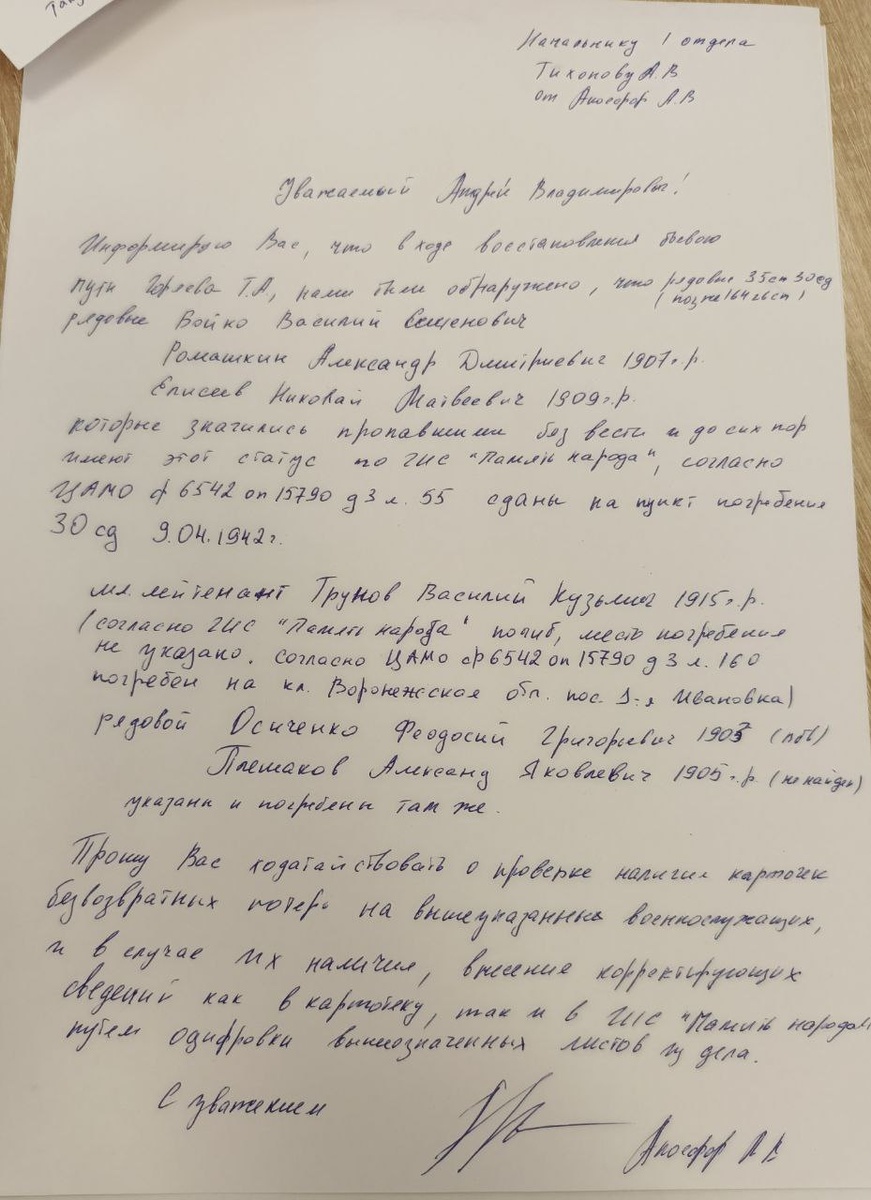 Начальнику 1 отдела
Тихонову А.В
от А.В
Уважаемый Андрей Владимирович!
Информирую Вас, что в ходе восстановления боевого
пути Т.А, нами были обнаружено, что рядовые 35сп 30сд
(позже 164гвсп)
рядовые Бойко Василий Семенович
Ромашкин Александр Дмитриевич 1907г.р.
Елисеев Николай Матвеевич 1909г.р.
которые значились пропавшими без вести и до сих пор
имеют этот статус по ГИС "Память народа", согласно
ЦАМО ф 6542 оп 15790 д 3 л. 55 сданы на пункт погребения
30 сд 9.04.1942г.
мл. лейтенант Трунов Василий Кузьмич 1915г.р.
(согласно ГИС "Память народа" погиб, место погребения
не указано. согласно ЦАМО ф 6542 оп 15790 д 3 л. 160
погребен на кл. Воронежская обл. пос. 1-я Ивановка)
рядовой Осиченко Феодосий Григорьевич
Плешаков Александ Яковлевич 1905г.р. (не найден)
указаны и погребены там же.
Прошу Вас ходатайствовать о проверке наличия карточек
безвозвратных потерь на вышеуказанных военнослужащих,
и в случае их наличия, внесение корректирующих
сведений как в картотеку, так и в ГИС "Память народа"
путем оцифровки вышеозначенных листов из дела.
С уважением